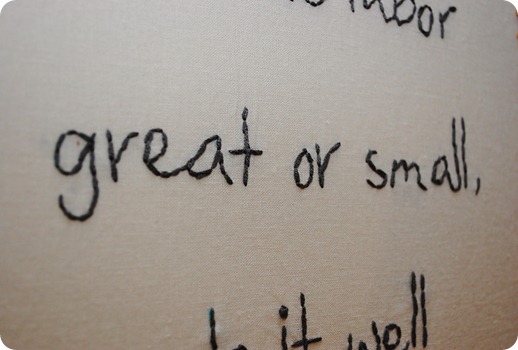 labor
great or small,
it well